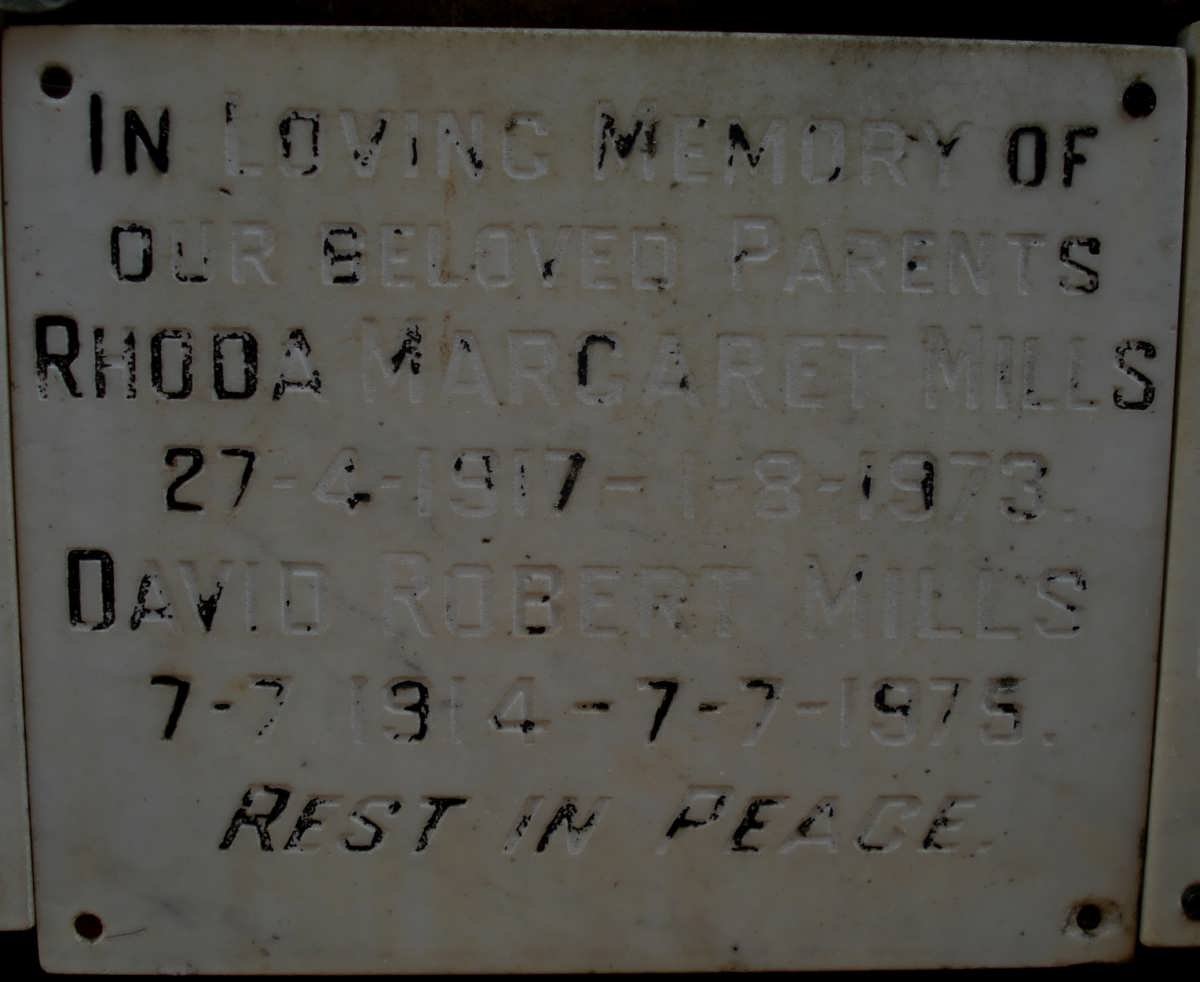 In Loving Memory of
Our Beloved Parents
Rhoda Margaret Mills
27-4-1917-1-8-1973.
David Robert Mills
7-7 1914-7-7-1975.
Rest in Peace.